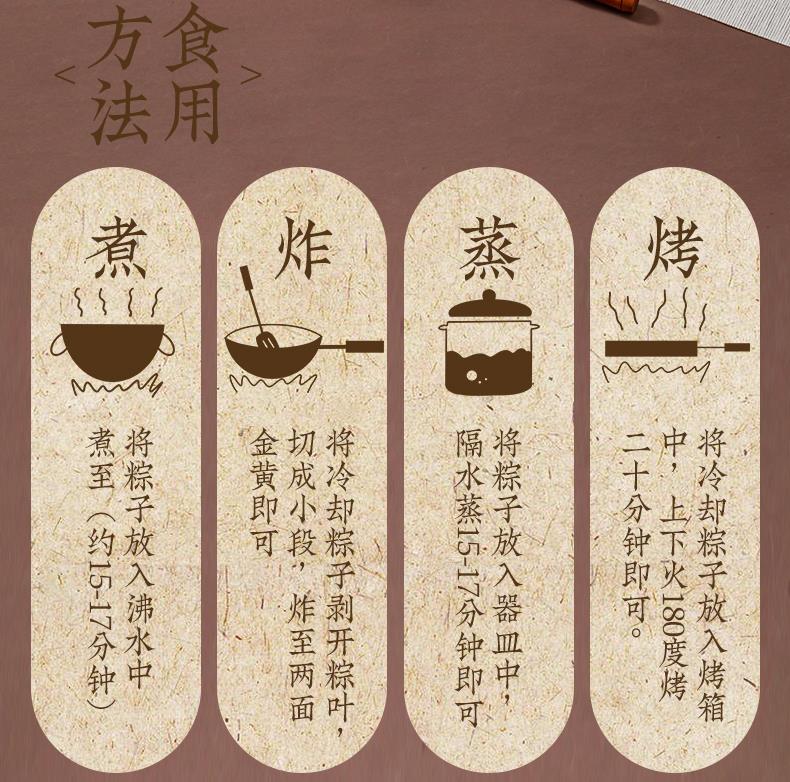 食用
方法
煮
将粽子放入沸水中
煮至（约15-17分钟）
炸
将冷却粽子剥开粽叶，
切成小段，炸至两面
金黄即可
蒸
将粽子放入器皿中，
隔水蒸15-17分钟即可
烤
将冷却粽子放入烤箱
中，上下火180度烤
二十分钟即可。